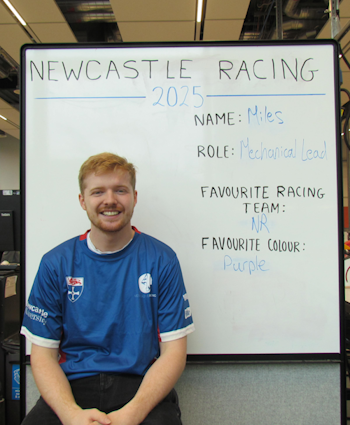 NEWCASTLE RACING
2025
NAME: Miles
ROLE: Mechanical Lead
FAVOURITE RACING
TEAM:
NR
FAVOURITE COLOUR:
Purple